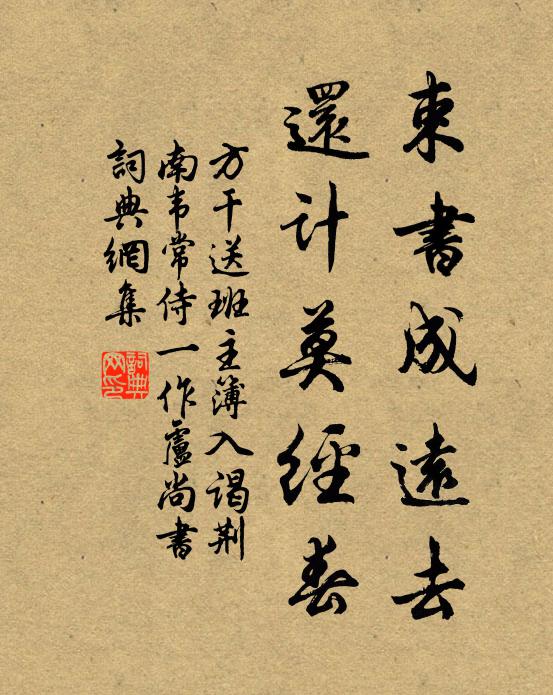 束書成遠去
還計莫經春
方干送班主簿入謁荆
南韦常侍一作盧尚書
詞典網集
詞典网印